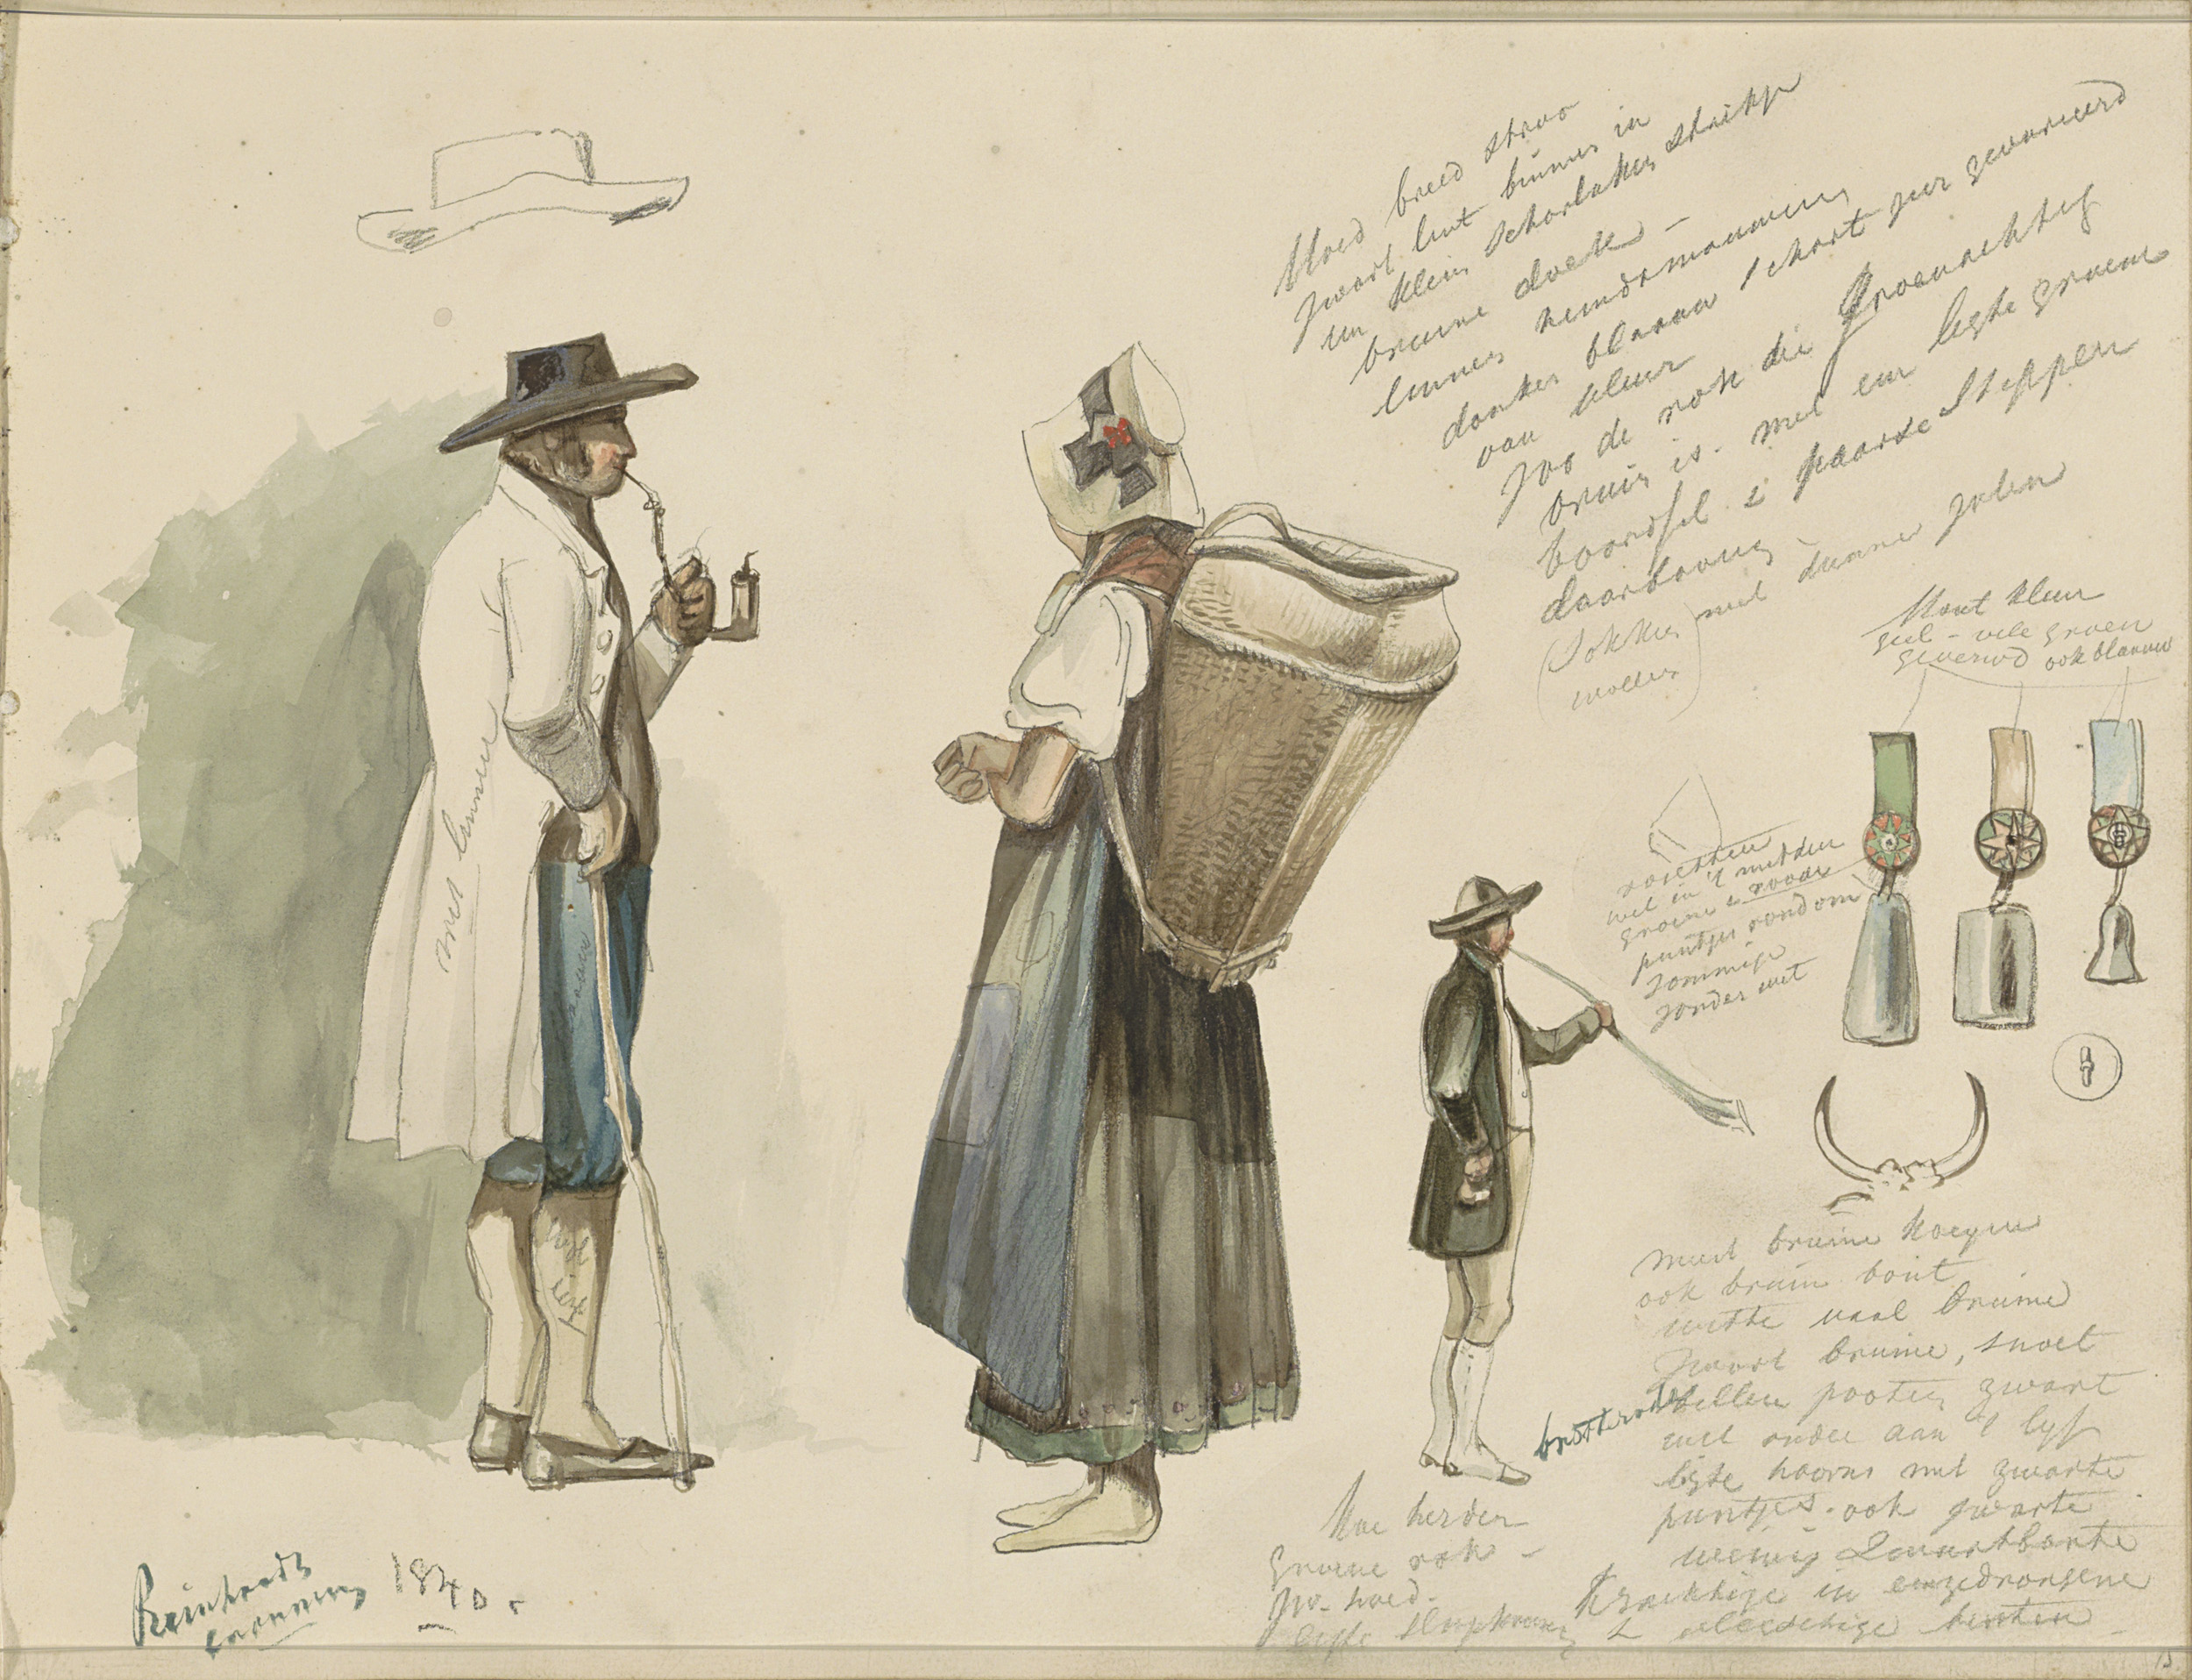 Hoed breed stroo
zwart lint binnen in
een klein scharlaken strikje
bruine doek -
linnen hemdsmouwen
donker blaauw schort zeer gevarieerd
van kleur
zoo de rok die Groenachtig
bruin is. met een ligte groene
boordsel & paarse Stippen
daarboven -
(Sokken met dunne zolen
wollen)
Hout kleur
geel - vele groen
geverwd ook blaauw
rosetten
wel in 't midden
groene & roode
puntjes rondom
sommige
zonder wit
met linnen
blaauw
Meest bruine koeyen
ook bruin bont
witte vaal bruine
zwart bruine, snoet
billen pooten zwart
wel onder aan 't lyf
ligte hoorns met zwarte
puntjes. ook zwarte
weinig zwartbonte
krachtige in eengedrongene
& vleeschige beesten
brotterode
Koe herder
Groene rok -
gr. hoed.
Reinhards
1840.
13